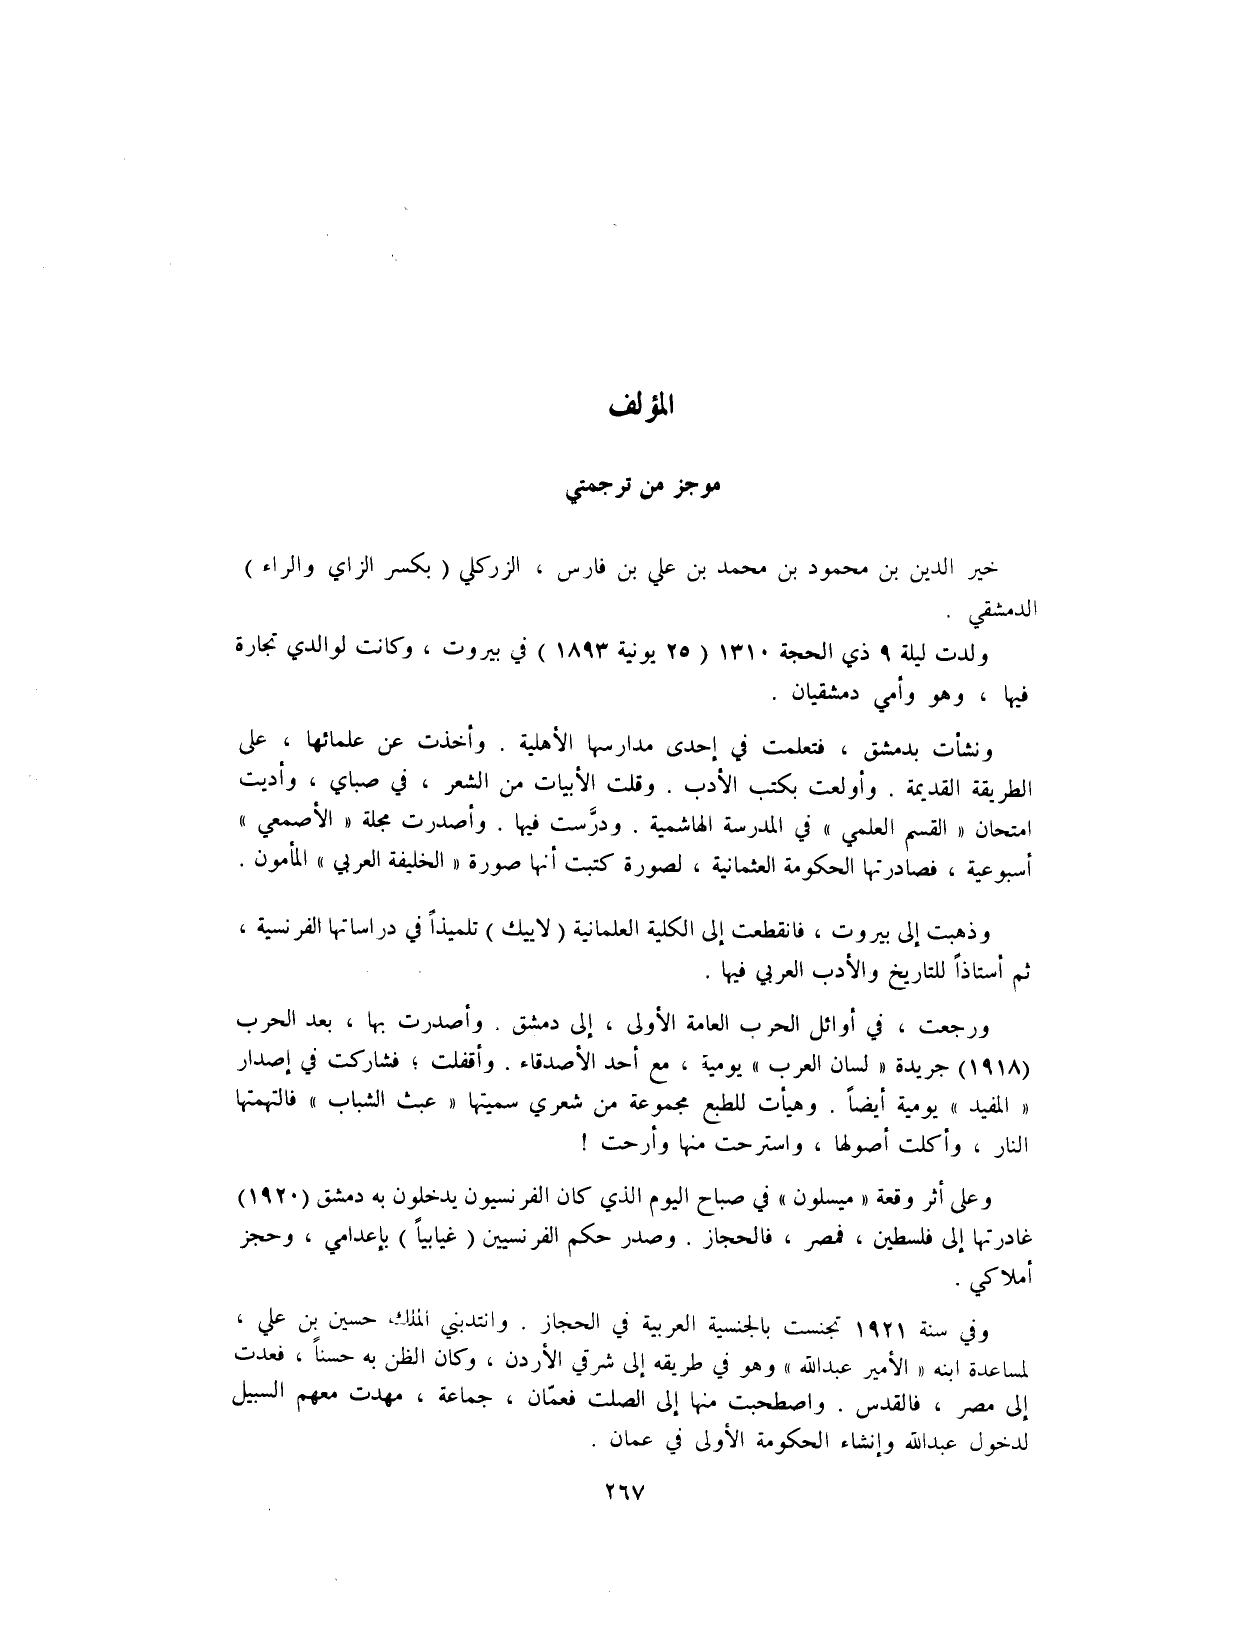 المؤلف
موجز من ترجمتي
خير الدين بن محمود بن محمد بن علي بن فارس ، الزركلي ( بكسر الزاي والراء )
الدمشقي .
ولدت ليلة ٩ ذي الحجة ١٣١٠ ( ٢٥ يونية ١٨٩٣ ) في بيروت ، وكانت لوالدي تجارة
فيها ، وهو وأمي دمشقيان .
ونشأت بدمشق ، فتعلمت في إحدى مدارسها الأهلية . وأخذت عن علمائها ، على
الطريقة القديمة . وأولعت بكتب الأدب . وقلت الأبيات من الشعر ، في صباي ، وأديت
امتحان « القسم العلمي » في المدرسة الهاشمية . ودرَّست فيها . وأصدرت مجلة « الأصمعي »
أسبوعية ، فصادرتها الحكومة العثمانية ، لصورة كتبت أنها صورة « الخليفة العربي » المأمون .
وذهبت إلى بيروت ، فانقطعت إلى الكلية العلمانية ( لاييك ) تلميذاً في دراساتها الفرنسية ،
ثم أستاذاً للتاريخ والأدب العربي فيها .
ورجعت ، في أوائل الحرب العامة الأولى ، إلى دمشق . وأصدرت بها ، بعد الحرب
(١٩١٨) جريدة « لسان العرب » يومية ، مع أحد الأصدقاء . وأقفلت ؛ فشاركت في إصدار
« المفيد » يومية أيضاً . وهيأت للطبع مجموعة من شعري سميتها « عبث الشباب » فالتهمتها
النار ، وأكلت أصولها ، واسترحت منها وأرحت !
وعلى أثر وقعة « ميسلون » في صباح اليوم الذي كان الفرنسيون يدخلون به دمشق (١٩٢٠)
غادرتها إلى فلسطين ، فمصر ، فالحجاز . وصدر حكم الفرنسيين ( غيابياً ) بإعدامي ، وحجز
أملاكي .
وفي سنة ١٩٢١ تجنست بالجنسية العربية في الحجاز . وانتدبني الملك حسين بن علي ،
لمساعدة ابنه « الأمير عبدالله » وهو في طريقه إلى شرقي الأردن ، وكان الظن به حسناً ، فعدت
إلى مصر ، فالقدس . واصطحبت منها إلى الصلت فعمّان ، جماعة ، مهدت معهم السبيل
لدخول عبدالله وإنشاء الحكومة الأولى في عمان .
٢٦٧